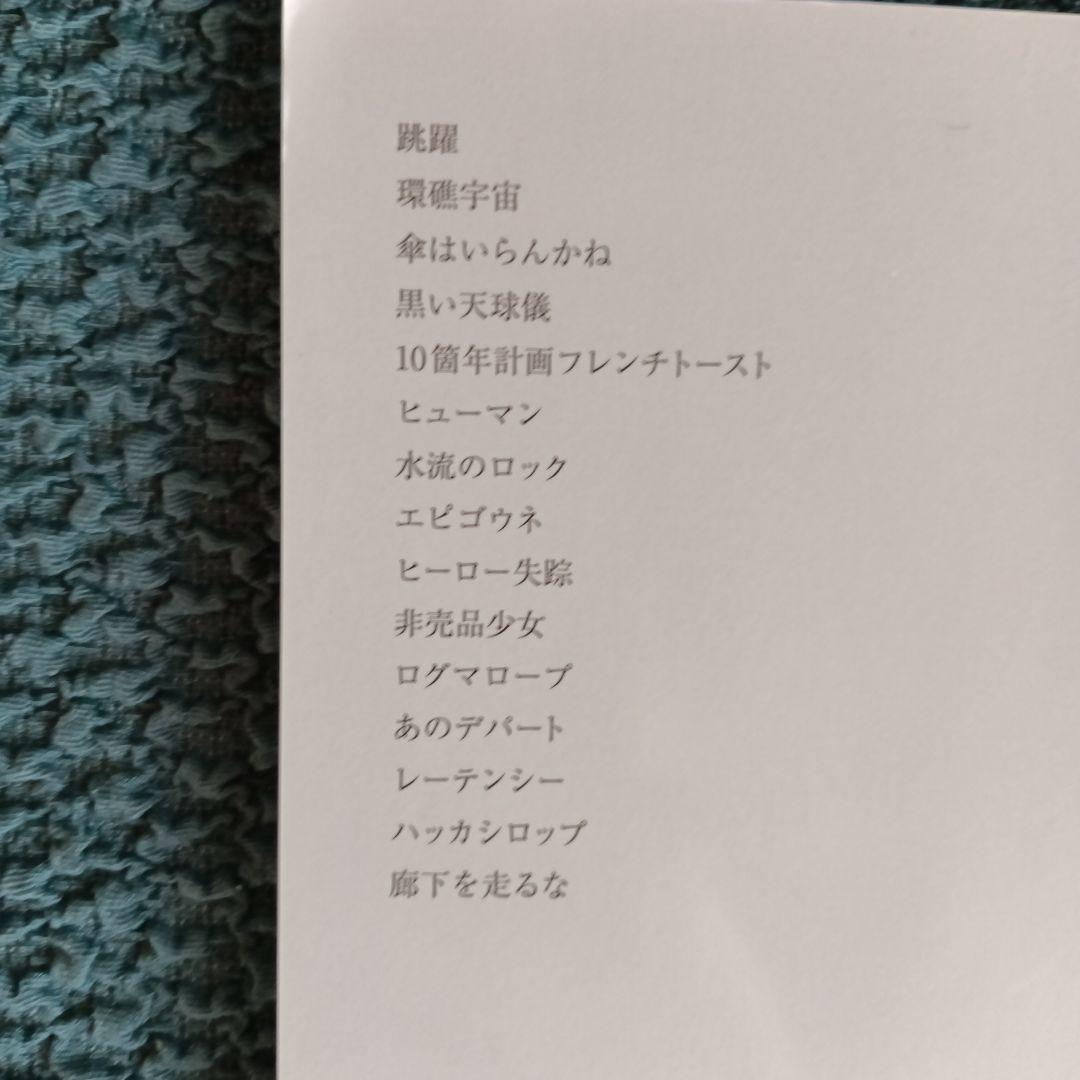 跳躍
環礁宇宙
傘はいらんかね
黒い天球儀
10箇年計画フレンチトースト
ヒューマン
水流のロック
エピゴウネ
ヒーロー失踪
非売品少女
ログマロープ
あのデパート
レーテンシー
ハッカシロップ
廊下を走るな